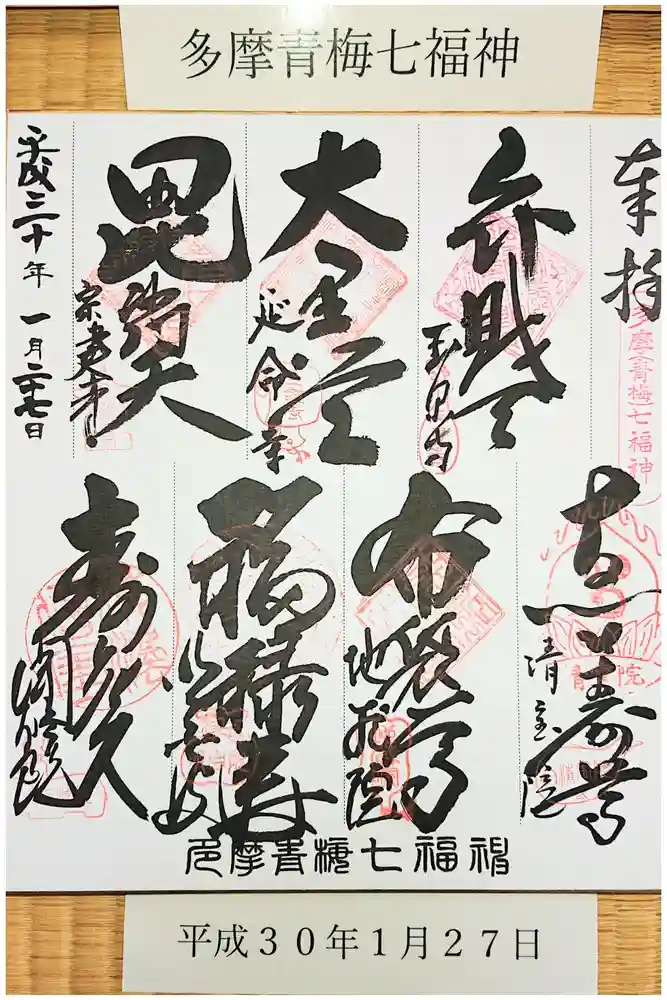 多摩青梅七福神
奉拝
多摩(青梅)七福神
弁財天
玉泉寺
大黒天
延命寺
毘沙門天
宗建寺
平成三十年一月二十七日
吉祥尊
清宝院
布袋尊
地蔵院
福禄寿
寿老人
聞修院
多摩青梅七福神
平成３０年１月２７日